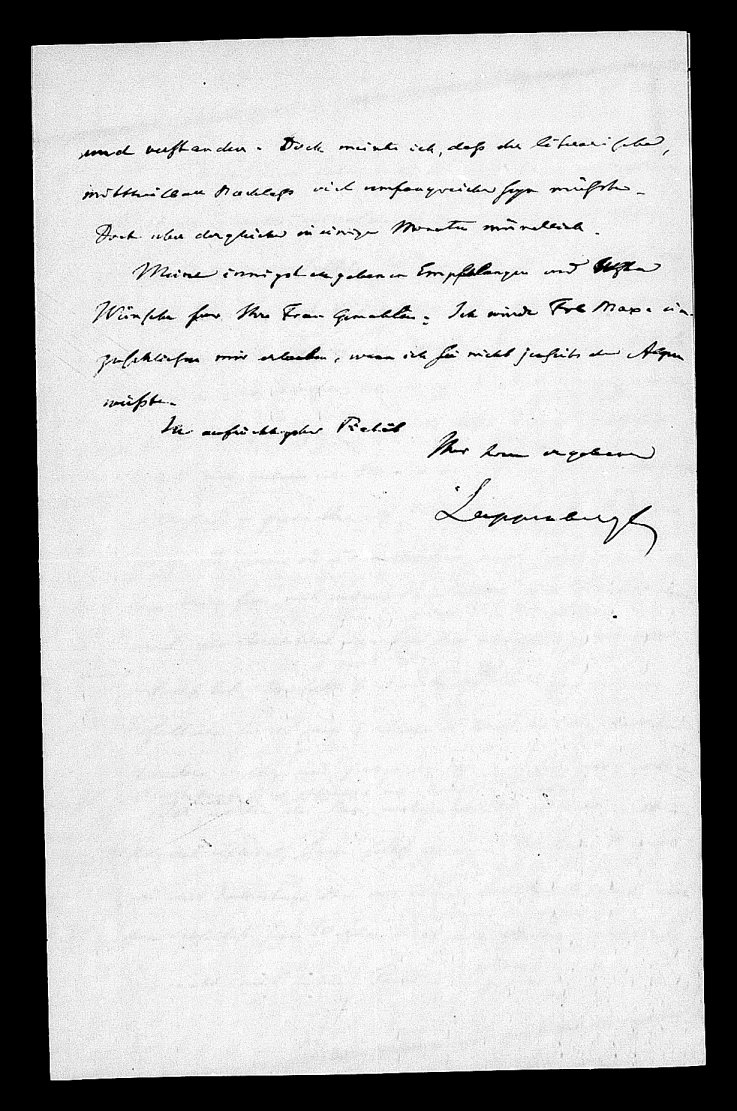 und vorhanden. Doch meinte ich, daß der literarische,
mittheilbare Nachlaß viel umfangreicher seyn müßte.
Doch über dergleichen in einigen Monaten mündlich.
Meine innigst ergebenen Empfehlungen und besten
Wünsche für Ihre Frau Gemahlin. Ich würde Frl Max ein-
zuschließen mir erlauben, wenn ich sie nicht jenseits der Alpen
wüßte.
In aufrichtigster Pietät
Ihr treu ergebener
Lappenberg